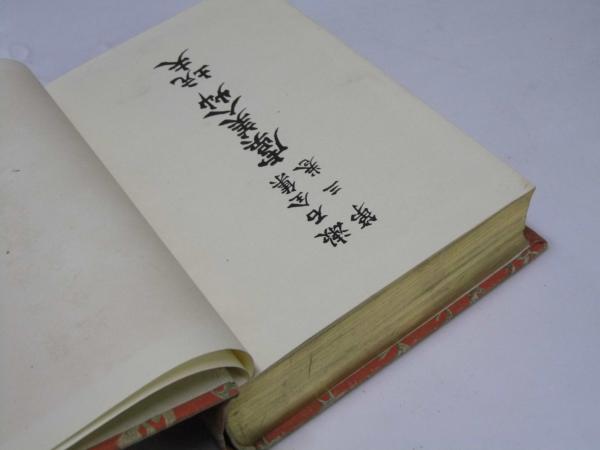 漱石全集
第三卷
虞美人草
坑夫